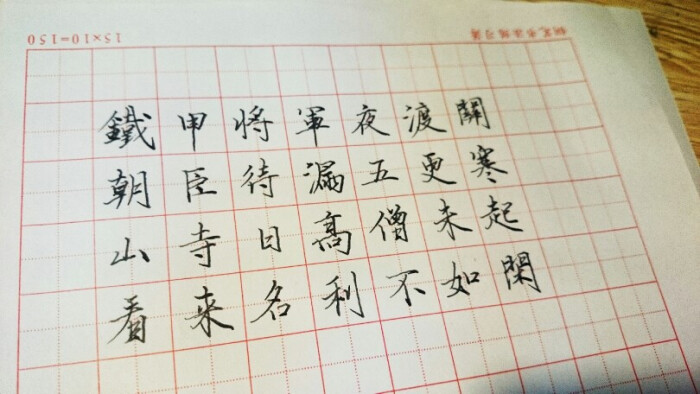 钢笔书法练习簿
15×10=150
鐵甲将軍夜渡關
朝臣待漏五更寒
山寺日高僧未起
看來名利不如閑